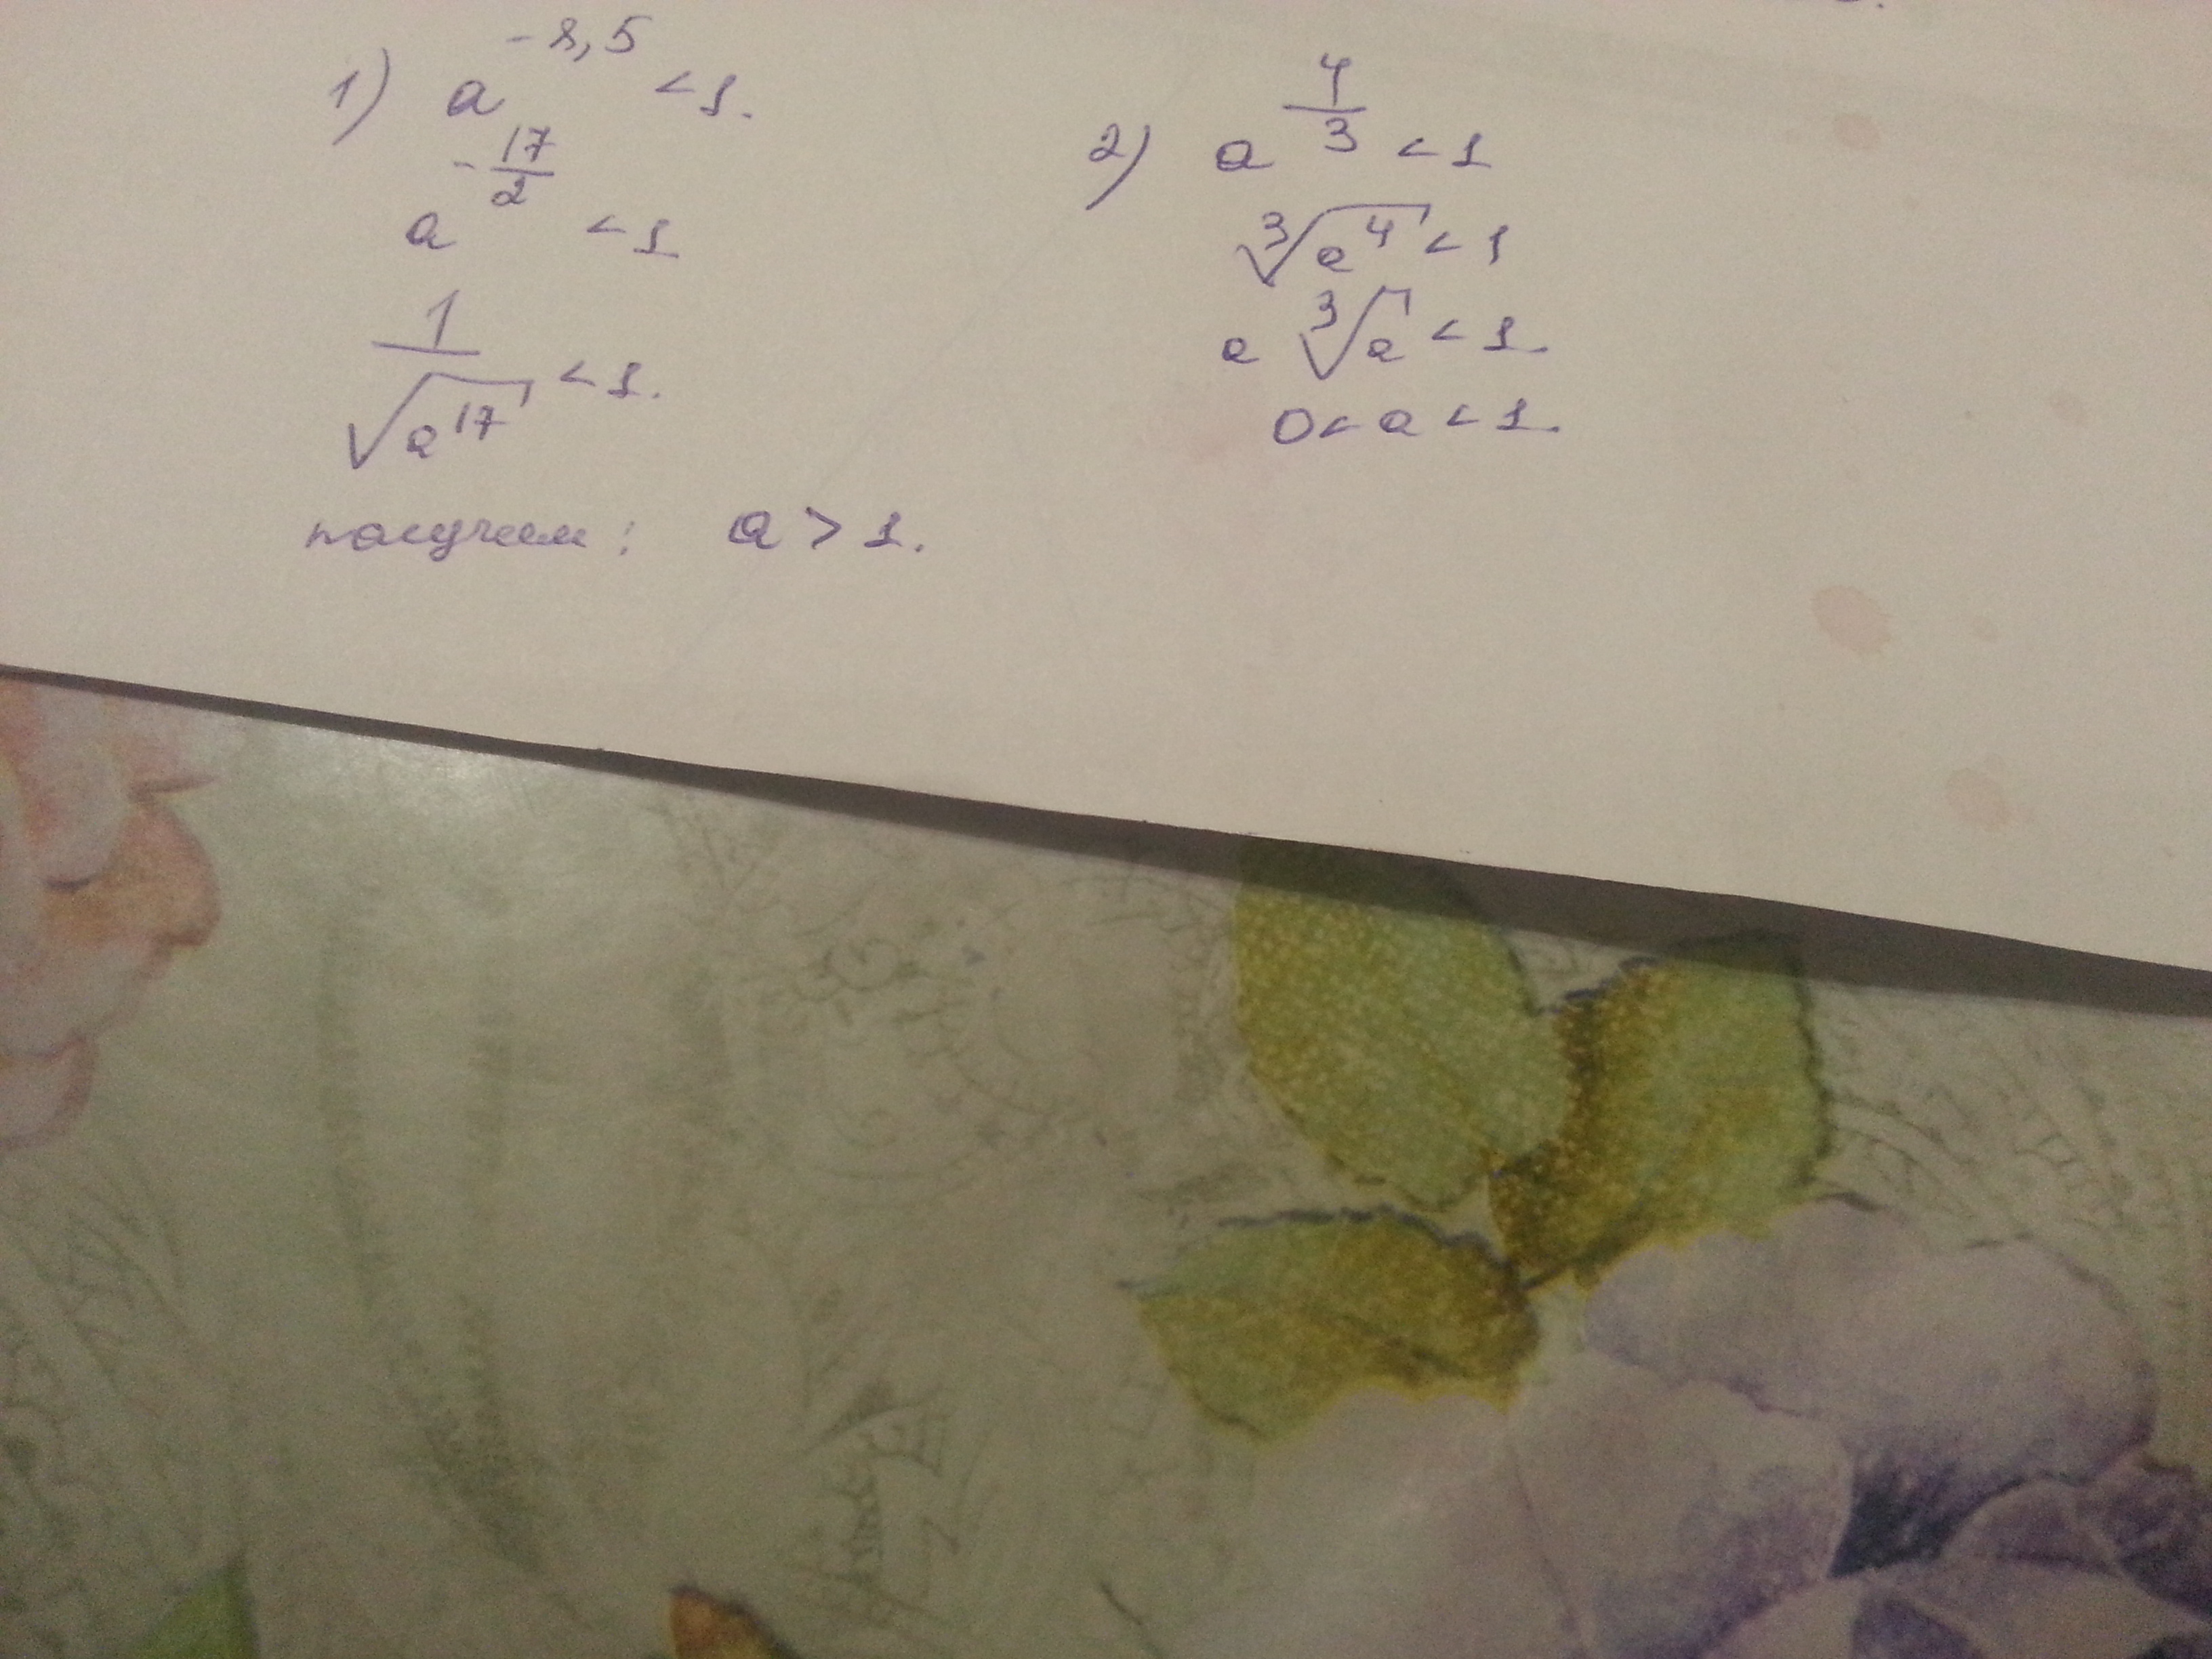 1) a^{-8,5} < 1.
a^{-\frac{17}{2}} < 1
\frac{1}{\sqrt{a^{17}}} < 1.
получаем: a > 1.
2) a^{\frac{4}{3}} < 1
\sqrt[3]{a^4} < 1
a \sqrt[3]{a} < 1.
0 < a < 1.